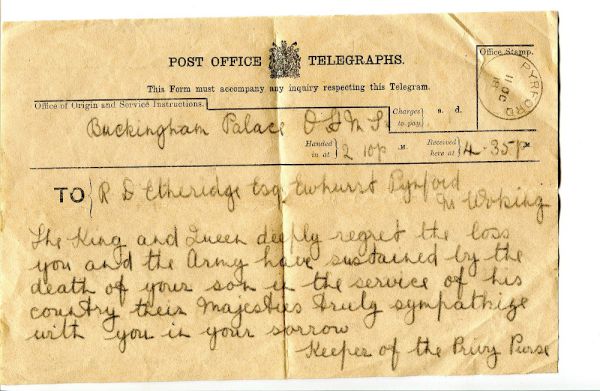 POST OFFICE TELEGRAPHS.
This Form must accompany any inquiry respecting this Telegram.
Office Stamp.
PYRFORD
11 OC
Office of Origin and Service Instructions.
Charges to pay s. d.
Buckingham Palace O H M S.
Handed in at 2 10p M. Received here at 4.35p M.
TO R D Etheridge Esq Ewhurst Pyrford
Nr Woking
The King and Queen deeply regret the loss
you and the Army have sustained by the
death of your son in the service of his
country their Majesties truly sympathize
with you in your sorrow
Keeper of the Privy Purse